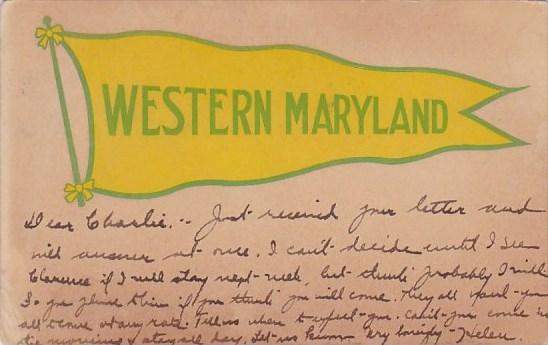 WESTERN MARYLAND
Dear Charlie. -- Just received your letter and
will answer at once. I can't decide until I see
Clarence if I will stay next week, but think probably I will
So you phone him if you think you will come. They all
all come at any rate. Tell us when to you. Can't you come in
the morning & stay all day. Let us know - Helen.